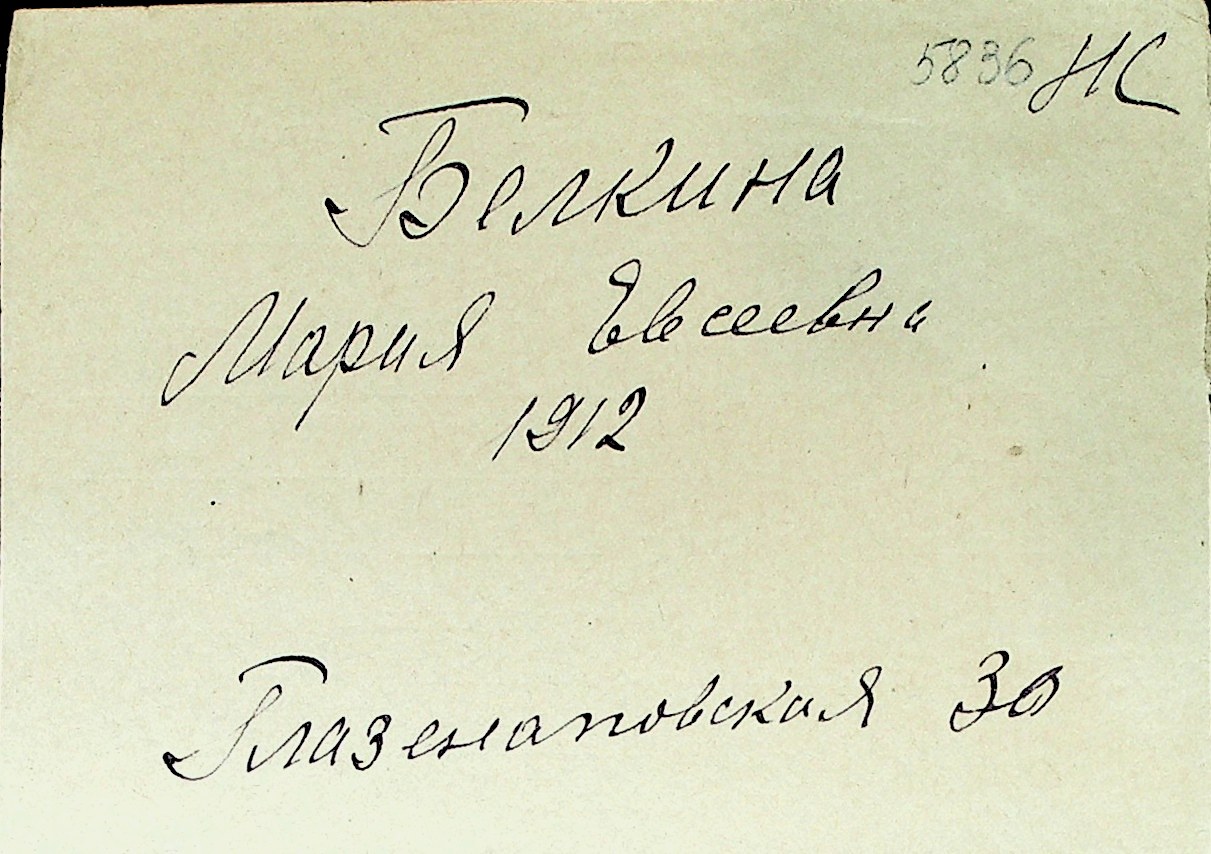 5836 НС
Белкина
Мария Евсеевна
1912
Глазенаповская 30